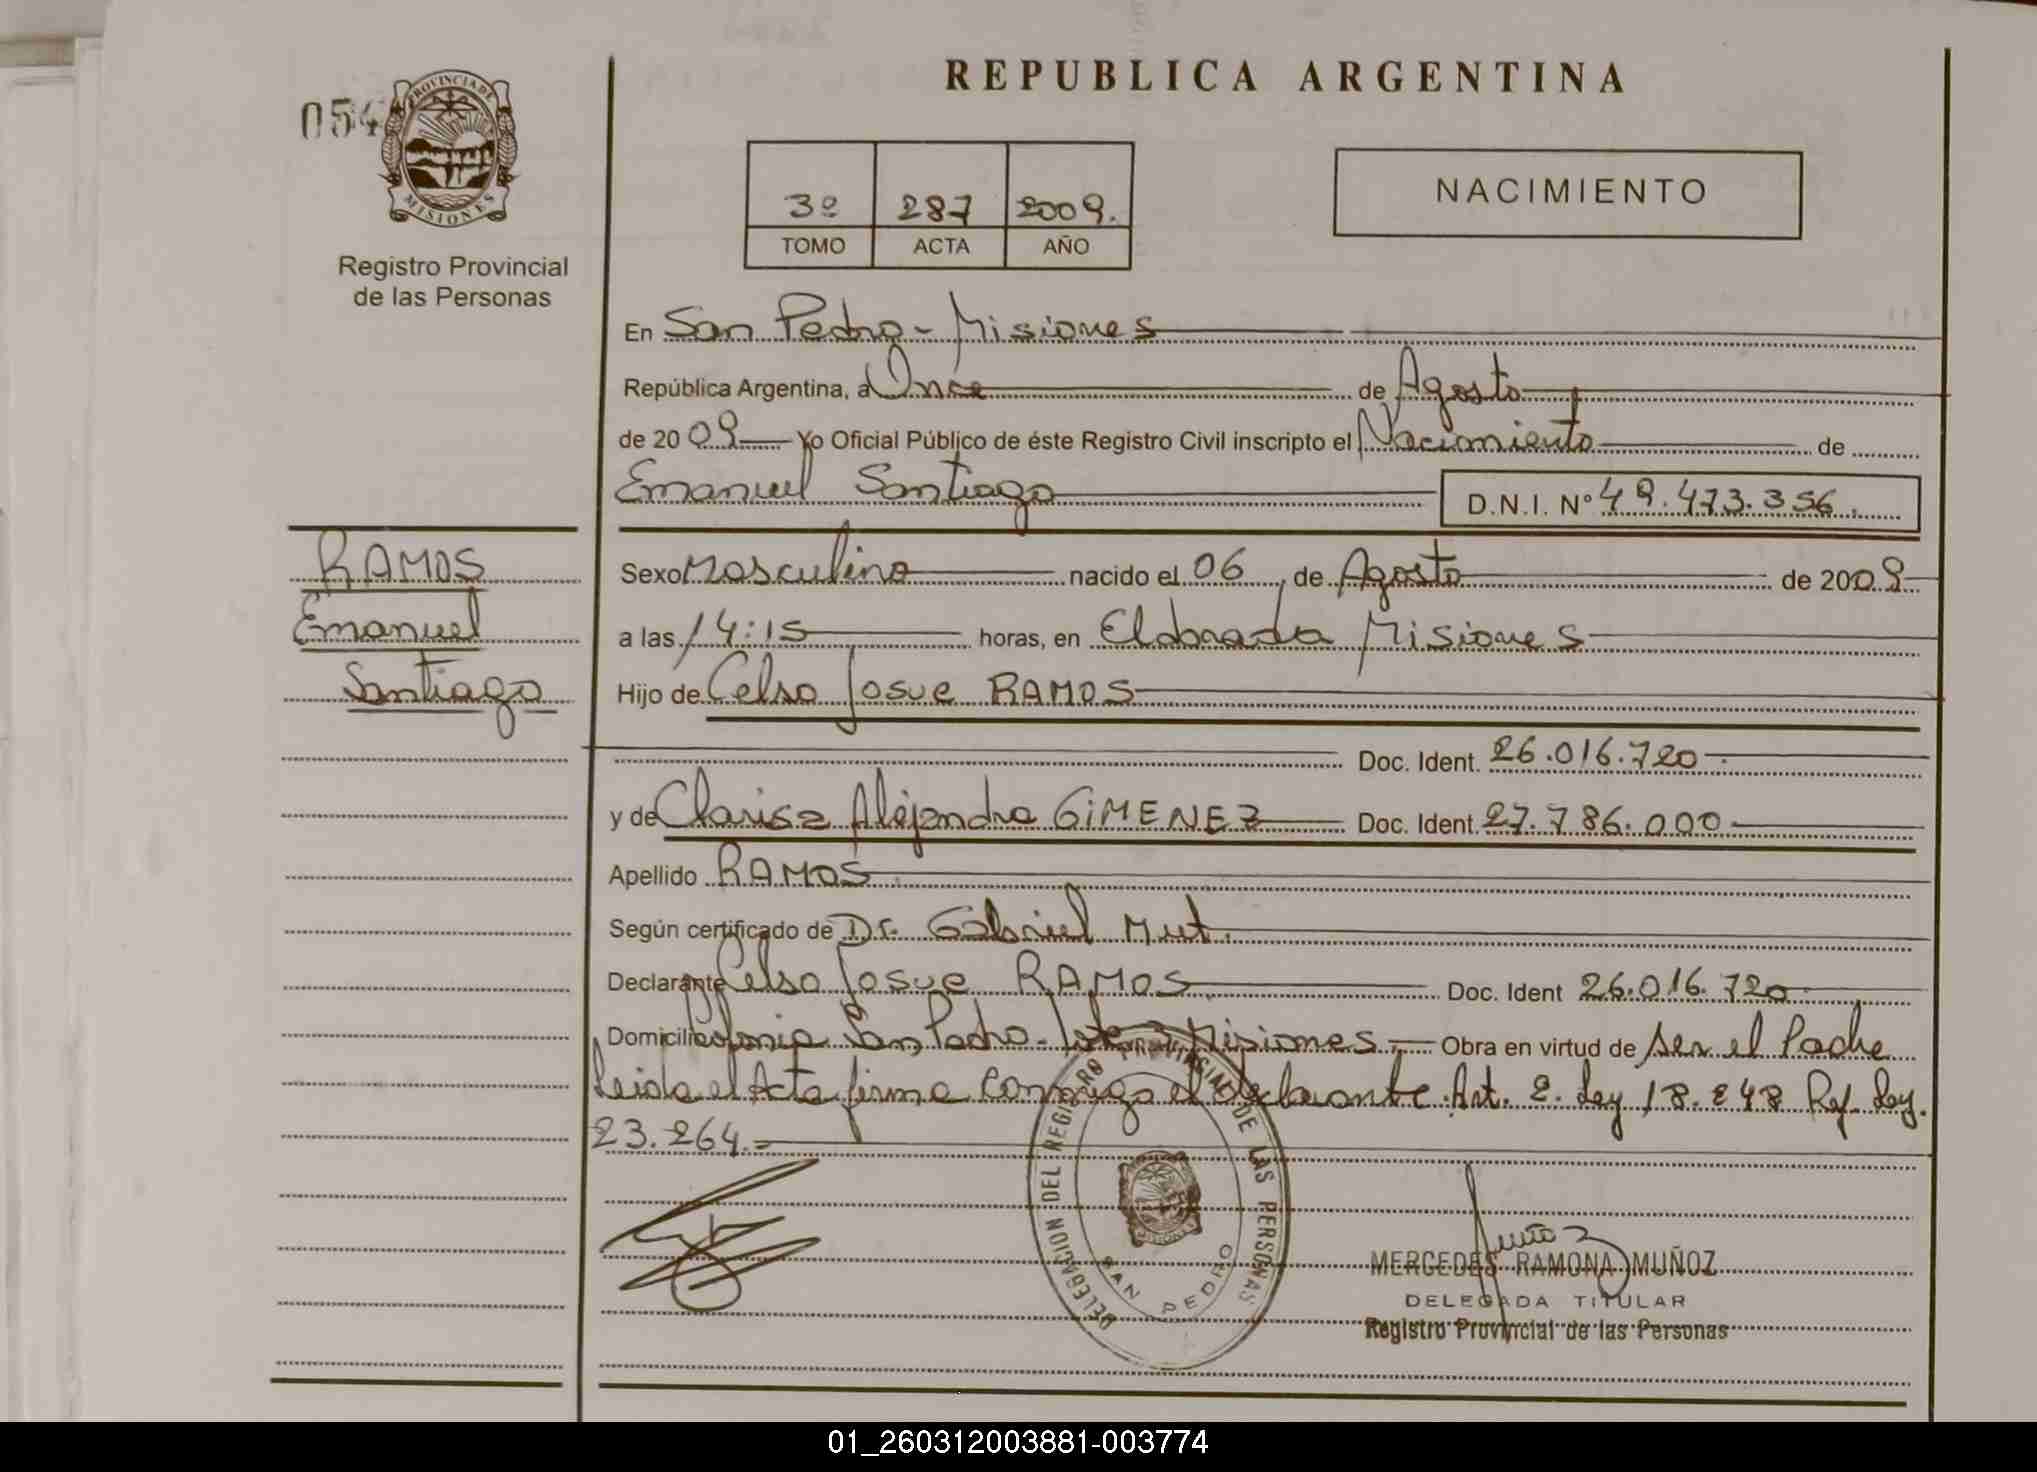 REPUBLICA ARGENTINA
054
PROVINCIA DE MISIONES
Registro Provincial
de las Personas
3º 287 2009.
TOMO ACTA AÑO
NACIMIENTO
En San Pedro - Misiones
República Argentina, a Once de Agosto
de 2009 Yo Oficial Público de éste Registro Civil inscripto el Nacimiento de
Emanuel Santiago D.N.I. Nº 49.473.356.
RAMOS
Emanuel
Santiago
Sexo Masculino nacido el 06 de Agosto de 2009
a las 14:15 horas, en Eldorado Misiones
Hijo de Celso Josue RAMOS
Doc. Ident. 26.016.720
y de Clarisa Alejandra GIMENEZ Doc. Ident. 27.786.000
Apellido RAMOS
Según certificado de Dr. Gabriel Mut.
Declarante Celso Josue RAMOS Doc. Ident 26.016.720
Domicilio Colonia San Pedro - Misiones Obra en virtud de ser el Padre
Leida el Acta firma conmigo el declarante. Art. 2. Ley 18.248 Ref. Ley.
23.264.=
DELEGACION DEL REGISTRO PROVINCIAL DE LAS PERSONAS
SAN PEDRO
Muñoz
MERCEDES RAMONA MUÑOZ
DELEGADA TITULAR
Registro Provincial de las Personas
01_260312003881-003774